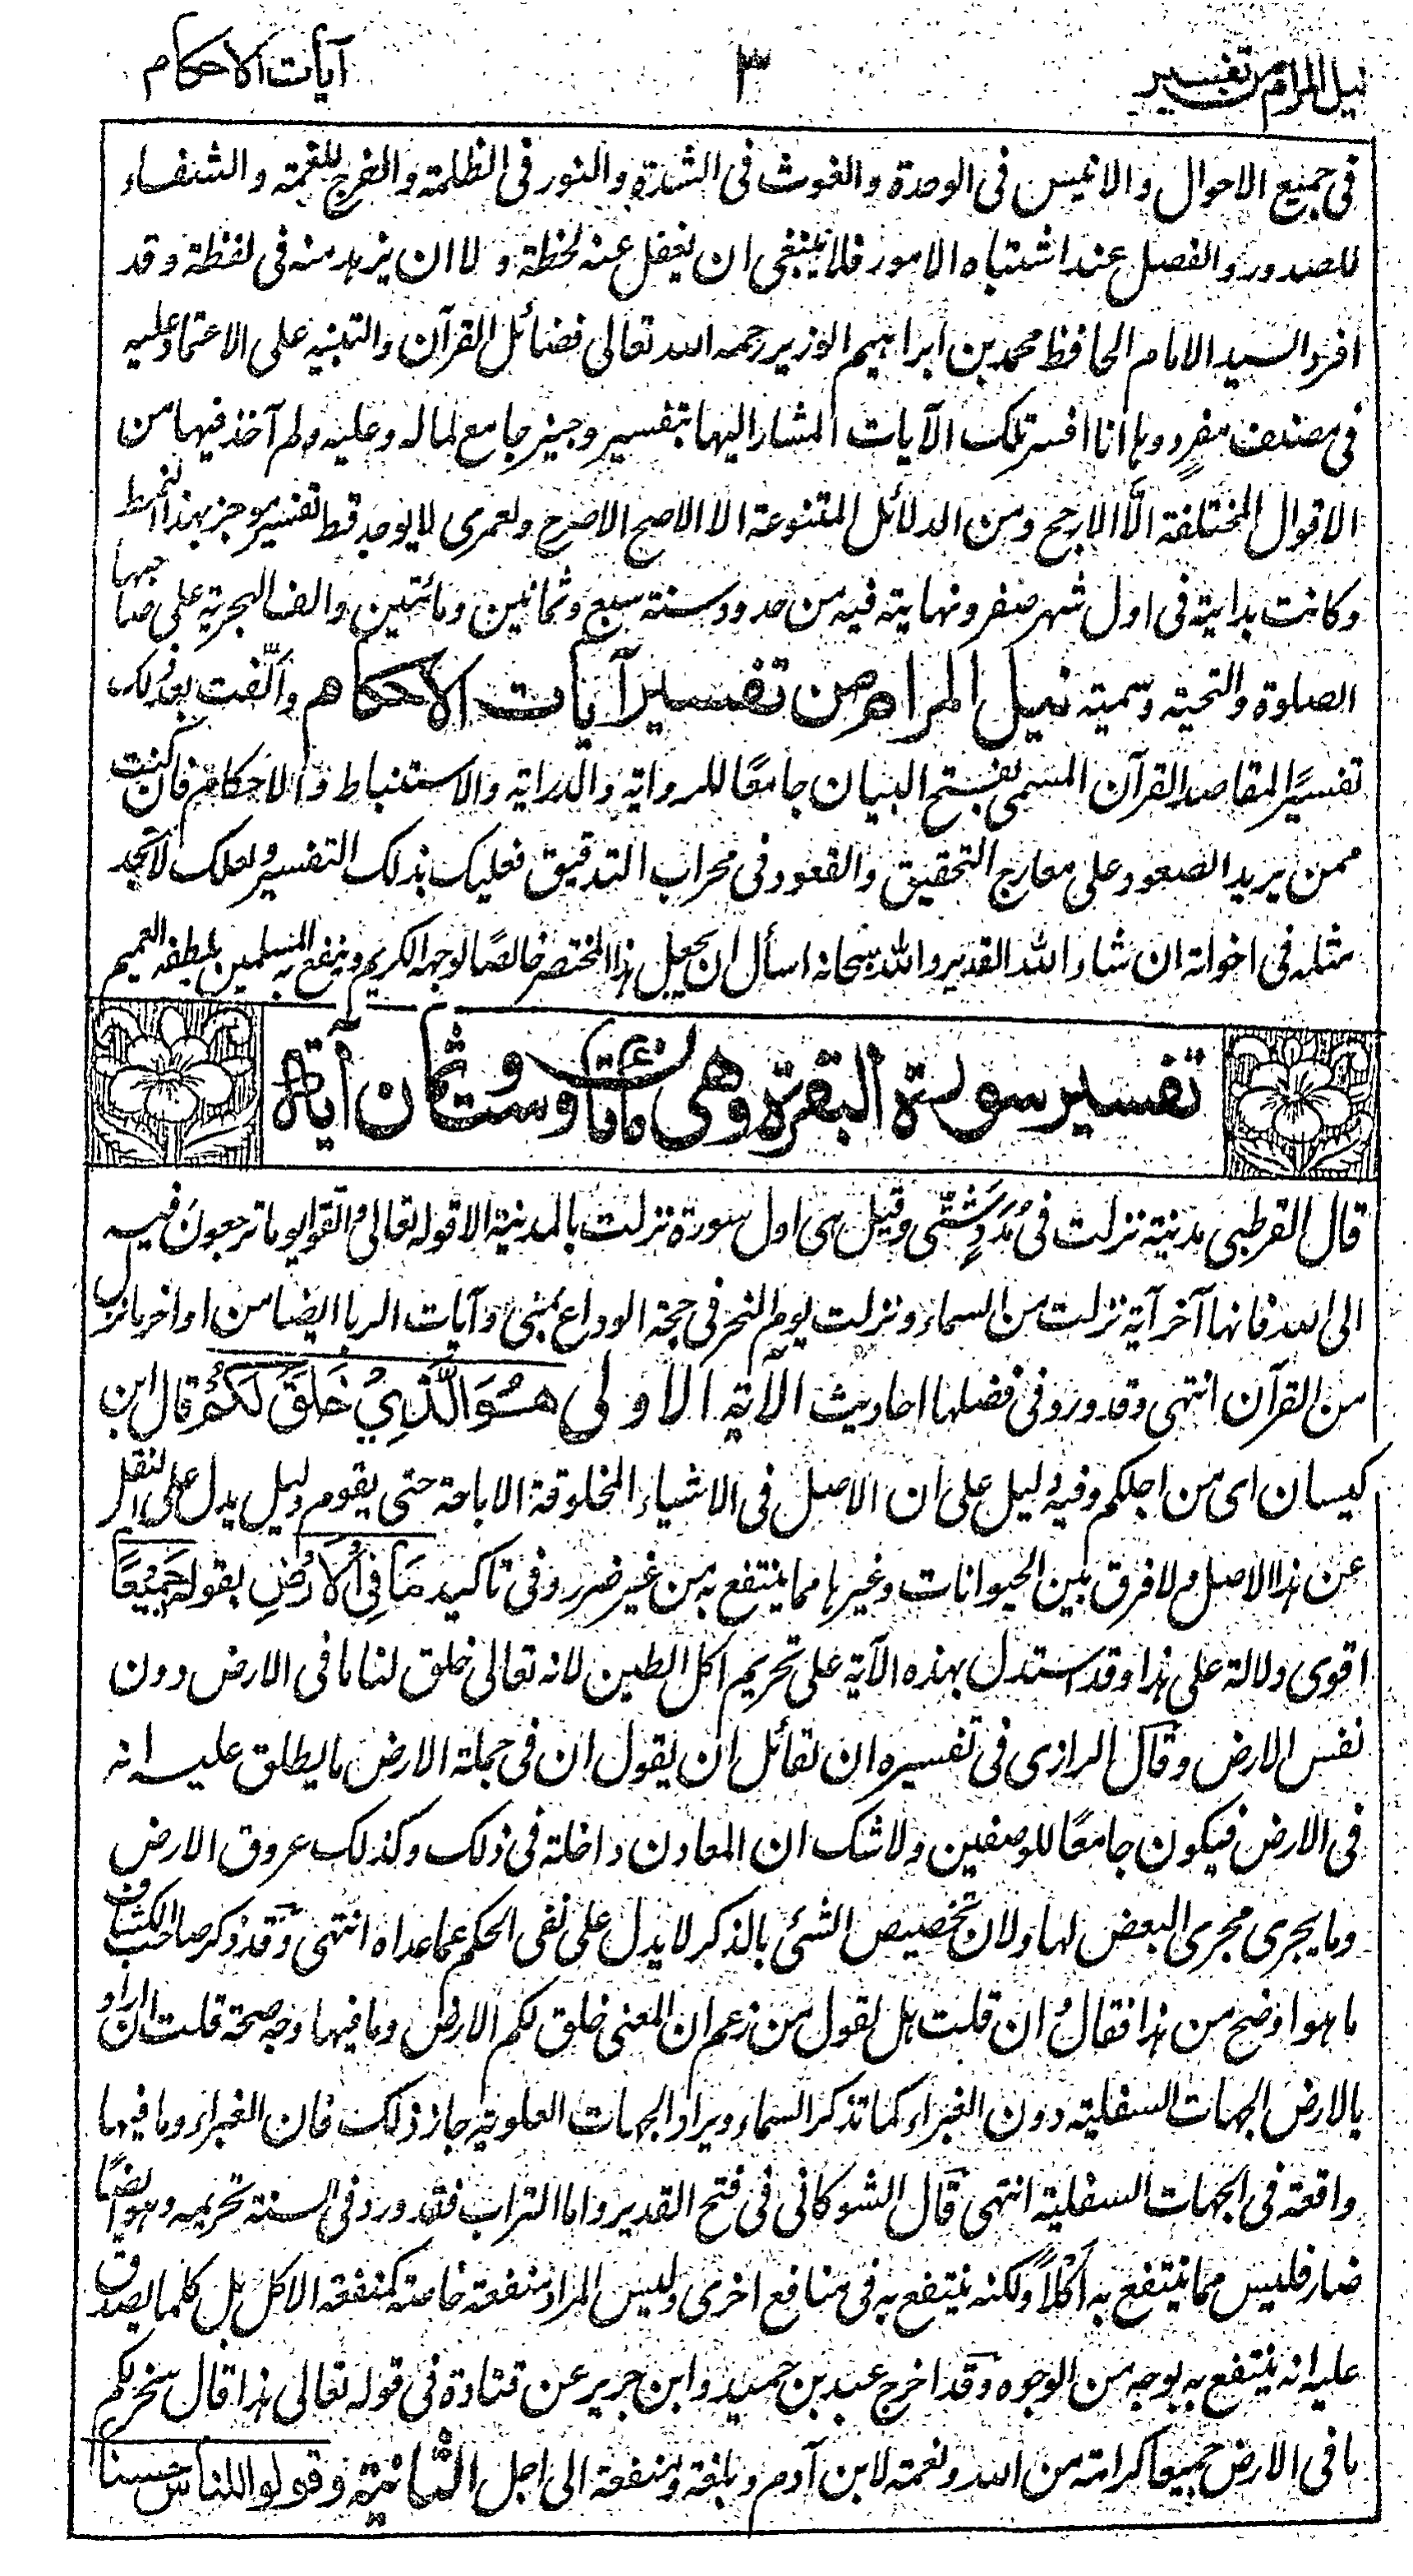 نيل المرام من تفسير ٣ آيات الاحكام
فى جميع الاحوال والانيس فى الوحدة والغوث فى الشدة والنور فى الظلمة والفرج للغمة والشفاء
للصدور والفصل عند اشتباه الامور فلا ينبغى ان يغفل عنه لحظة ولا ان يزهد منه فى لفظة وقد
افرد السيد الامام الحافظ محمد بن ابراهيم الوزير رحمه الله تعالى فضائل القرآن والتنبيه على الاعتماد عليه
فى مصنف مفرد وها انا افسر تلك الآيات المشار اليها بتفسير وجيز جامع لما له وعليه ولم آخذ فيها من
الاقوال المختلفة الّا الارجح ومن الدلائل المتنوعة الا الاصح الاصرح ولعمرى لا يوجد قط تفسير موجز بهذا النمط
وكانت بدايته فى اول شهر صفر ونهايته فيه من حدود سنة سبع وثمانين ومائتين والف الهجرية على صاحبها
الصلوة والتحية وسميته نيل المرام من تفسير آيات الاحكام والّفت بعد ذلك
تفسيرًا لمقاصد القرآن المسمى بفتح البيان جامعًا للرواية والدراية والاستنباط والاحكام فان كنت
ممن يريد الصعود على معارج التحقيق والقعود فى محراب التدقيق فعليك بذلك التفسير ولعلك لا تجد
مثله فى اخواته ان شاء الله القدير والله سبحانه اسأل ان يجعل هذا المختصر خالصًا لوجهه الكريم وينفع به المسلمين بلطفه العميم
تفسير سورة البقرة وهى مائتان وست وثمانون آية
قال القرطبى مدنية نزلت فى مُدَدٍ شَتّى وقيل هى اول سورة نزلت بالمدينة الا قوله تعالى واتقوا يوما ترجعون فيه
الى الله فانها آخر آية نزلت من السماء ونزلت يوم النحر فى حجة الوداع بمنى وآيات الربا ايضا من اواخر ما نزل
من القرآن انتهى وقد ورد فى فضلها احاديث الآية الاولى هُوَ الَّذِيْ خَلَقَ لَكُمْ قال ابن
كيسان اى من اجلكم وفيه دليل على ان الاصل فى الاشياء المخلوقة الاباحة حتى يقوم دليل يدل على النقل
عن هذا الاصل ولا فرق بين الحيوانات وغيرها مما ينتفع به من غير ضرر وفى تاكيد مَا فِى الْاَرْضِ بقوله جَمِيْعًا
اقوى دلالة على هذا وقد استدل بهذه الآية على تحريم اكل الطين لانه تعالى خلق لنا ما فى الارض دون
نفس الارض وقال الرازى فى تفسيره ان لقائل ان يقول ان فى جملة الارض ما يطلق عليه انه
فى الارض فيكون جامعًا للوصفين ولا شك ان المعادن داخلة فى ذلك وكذلك عروق الارض
وما يجرى مجرى البعض لها ولان تخصيص الشئ بالذكر لا يدل على نفى الحكم عما عداه انتهى وقد ذكر صاحب الكشاف
ما هو اوضح من هذا فقال ان قلت هل لقول من زعم ان المعنى خلق لكم الارض وما فيها وجه صحة قلت ان اراد
بالارض الجهات السفلية دون الغبراء كما تذكر السماء ويراد الجهات العلوية جاز ذلك فان الغبراء وما فيها
واقعة فى الجهات السفلية انتهى قال الشوكانى فى فتح القدير واما التراب فقد ورد فى السنة تحريمه وهو ايضًا
ضار فليس مما ينتفع به اكلًا ولكنه ينتفع به فى منافع اخرى وليس المراد منفعة خاصة كمنفعة الاكل بل كلما يصدق
عليه انه ينتفع به بوجه من الوجوه وقد اخرج عبد بن حميد وابن جرير عن قتادة فى قوله تعالى هذا قال سخر لكم
ما فى الارض جميعا كرامة من الله ونعمة لابن آدم وبلغة ومنفعة الى اجل الثانية وقولوا للناس حسنا